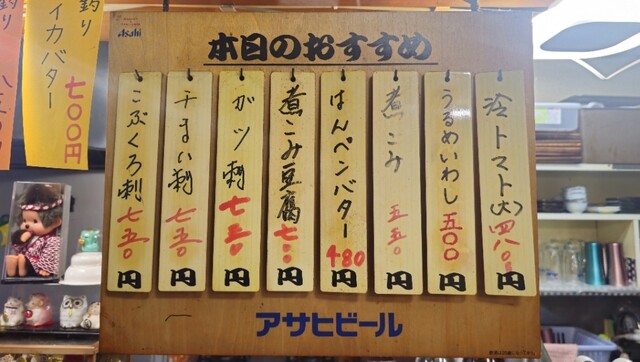 Asahi
本日のおすすめ
冷トマト(大) 480円
うるめいわし 五〇〇円
煮こみ 五五〇円
はんペンバター 480円
煮こみ豆腐 七〇〇円
ガツ刺 七五〇円
チまい刺 七五〇円
こぶくろ刺 七五〇円
アサヒビール
イカバター
七〇〇円